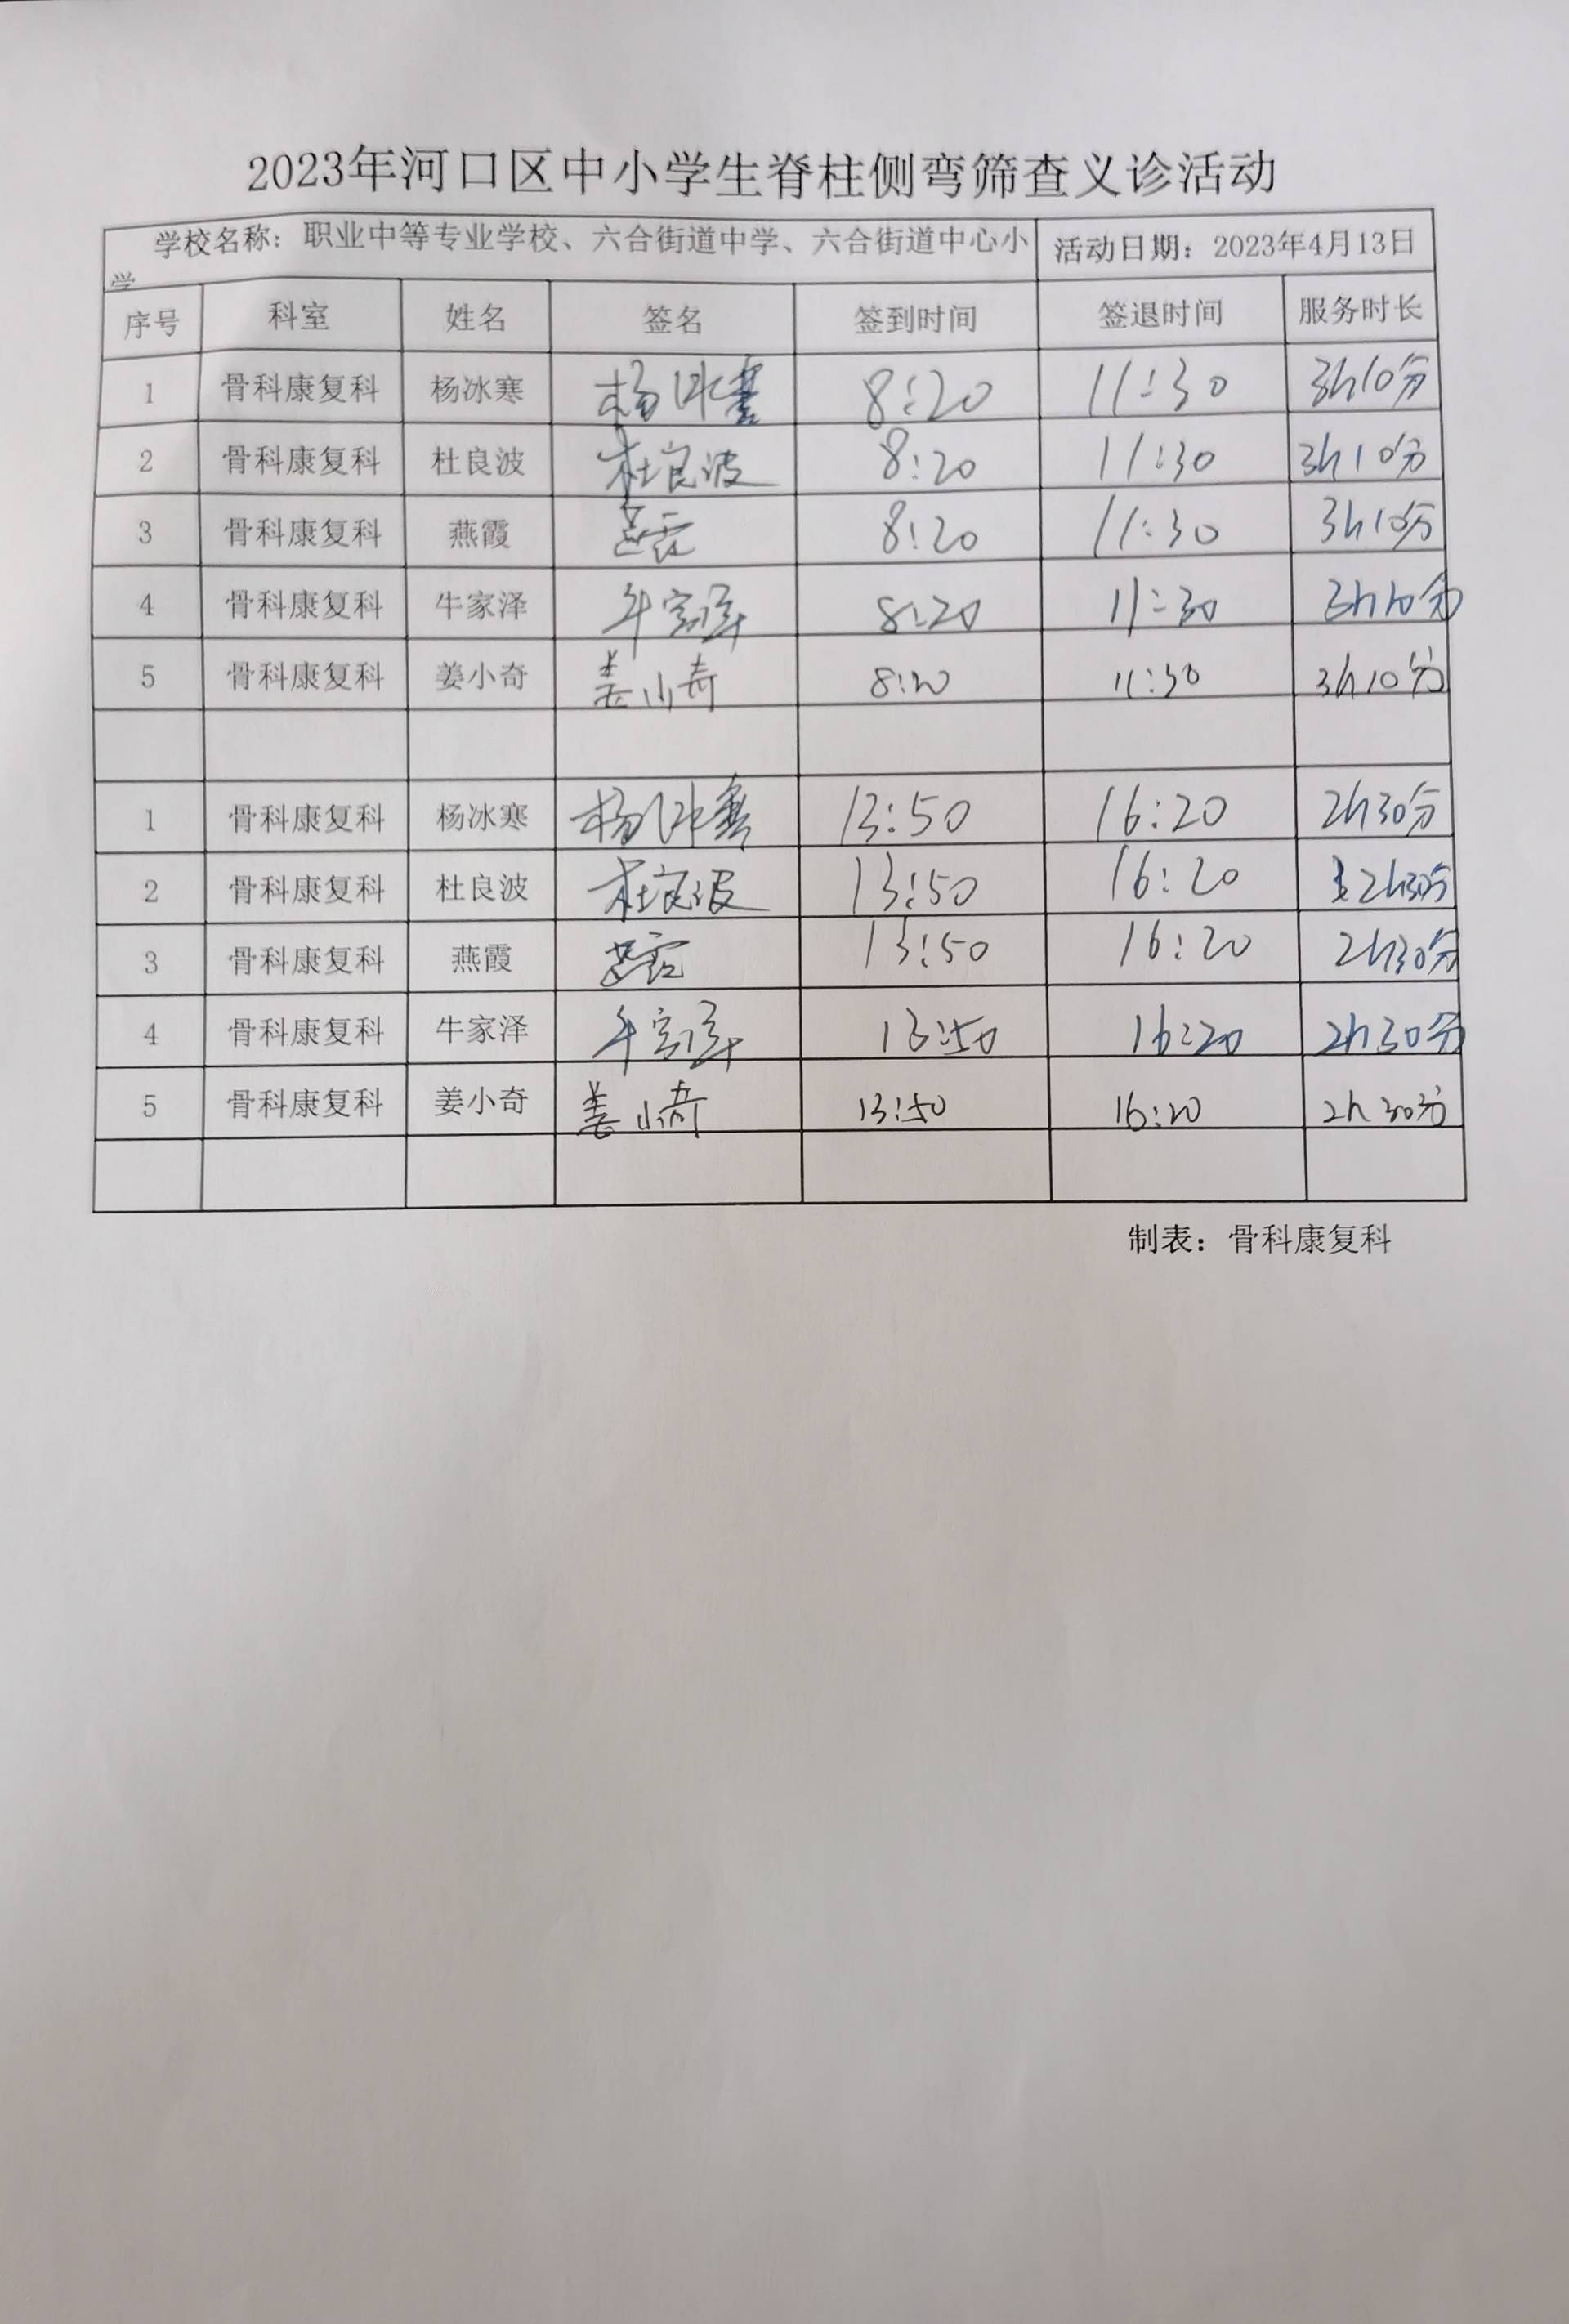 2023年河口区中小学生脊柱侧弯筛查义诊活动
学校名称：职业中等专业学校、六合街道中学、六合街道中心小
学
活动日期：2023年4月13日
序号 科室 姓名 签名 签到时间 签退时间 服务时长
1 骨科康复科 杨冰寒 杨冰寒 8:20 11:30 3h10分
2 骨科康复科 杜良波 杜良波 8:20 11:30 3h10分
3 骨科康复科 燕霞 燕霞 8:20 11:30 3h10分
4 骨科康复科 牛家泽 牛家泽 8:20 11:30 3h10分
5 骨科康复科 姜小奇 姜小奇 8:20 11:30 3h10分
1 骨科康复科 杨冰寒 杨冰寒 13:50 16:20 2h30分
2 骨科康复科 杜良波 杜良波 13:50 16:20 2h30分
3 骨科康复科 燕霞 燕霞 13:50 16:20 2h30分
4 骨科康复科 牛家泽 牛家泽 13:50 16:20 2h30分
5 骨科康复科 姜小奇 姜小奇 13:50 16:20 2h30分
制表：骨科康复科